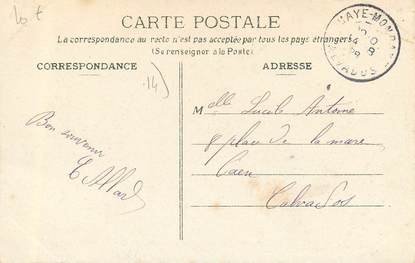 CARTE POSTALE
La correspondance au recto n'est pas acceptée par tous les pays étrangers
(Se renseigner à la Poste)
CORRESPONDANCE
ADRESSE
14
Bon souvenir
E Allard
Melle Antoine
8 place de la mare
Caen
Calvados
CALVADOS